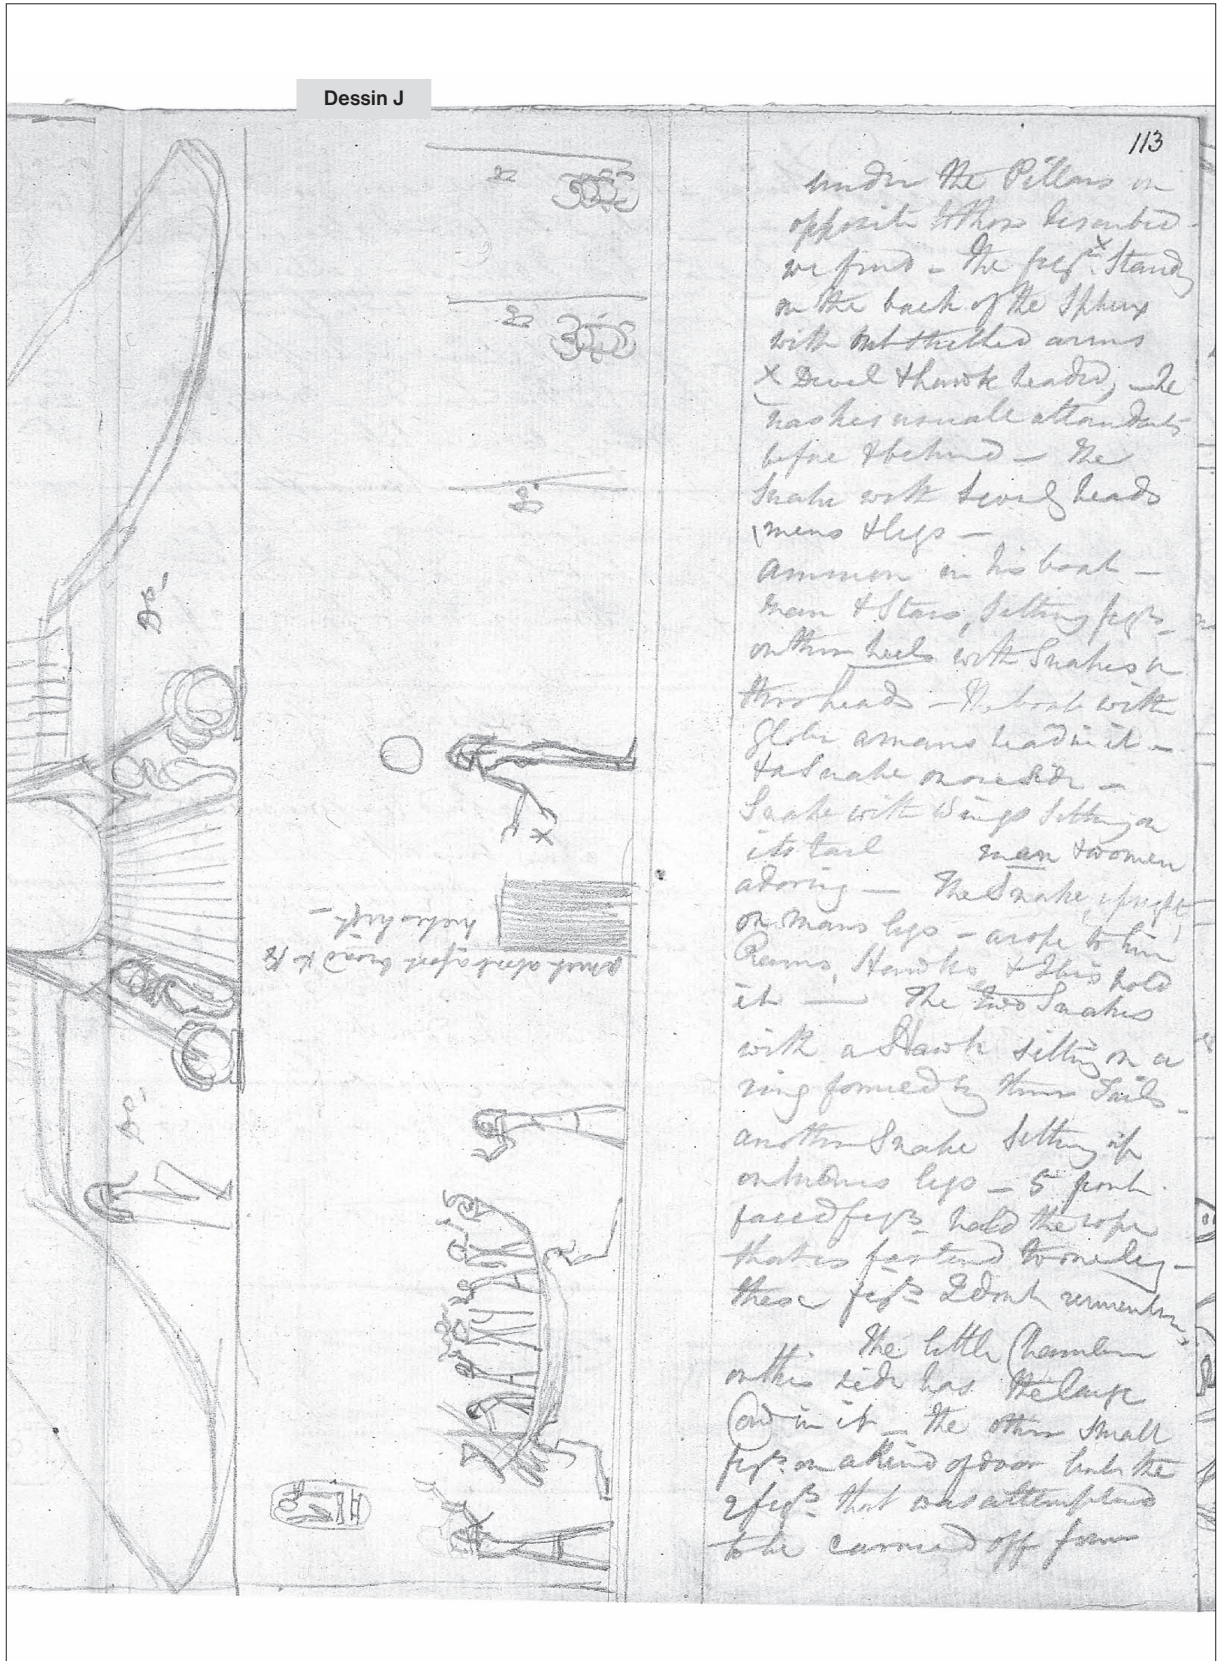 Dessin J
113
under the Pillars on
opposite to those described
we find – the figr. x Stands
on the back of the Sphinx
with out stretched arms
x Devil & hawk headed, – he
has his usuall attendants
before & behind – The
Snake with Several heads
mens & legs –
ammon in his boat –
man & Stars, Sitting figrs –
on their heels with Snakes
heads – The boat with
Globe a mans head in it –
& a Snake on one side –
Snake with Wings Sitting on
its tail man & women
adoring – The Snake, upright,
on mans legs – a rope to him
Rams, Hawks, & Ibis hold
it — The two Snakes
with a Hawk sitting on a
ring formed by their Tails –
another Snake Sitting up
on legs – 5 front
faced figrs hold the rope
that is fastend to one leg –
these figrs I dont remember
The little Chamber
on this side has the large
God in it – the other small
figrs. on a Kind of door like the
2 figrs that was attempted
to be carried off from
Do.
Do.
x
a foot broad & 18
inches high –